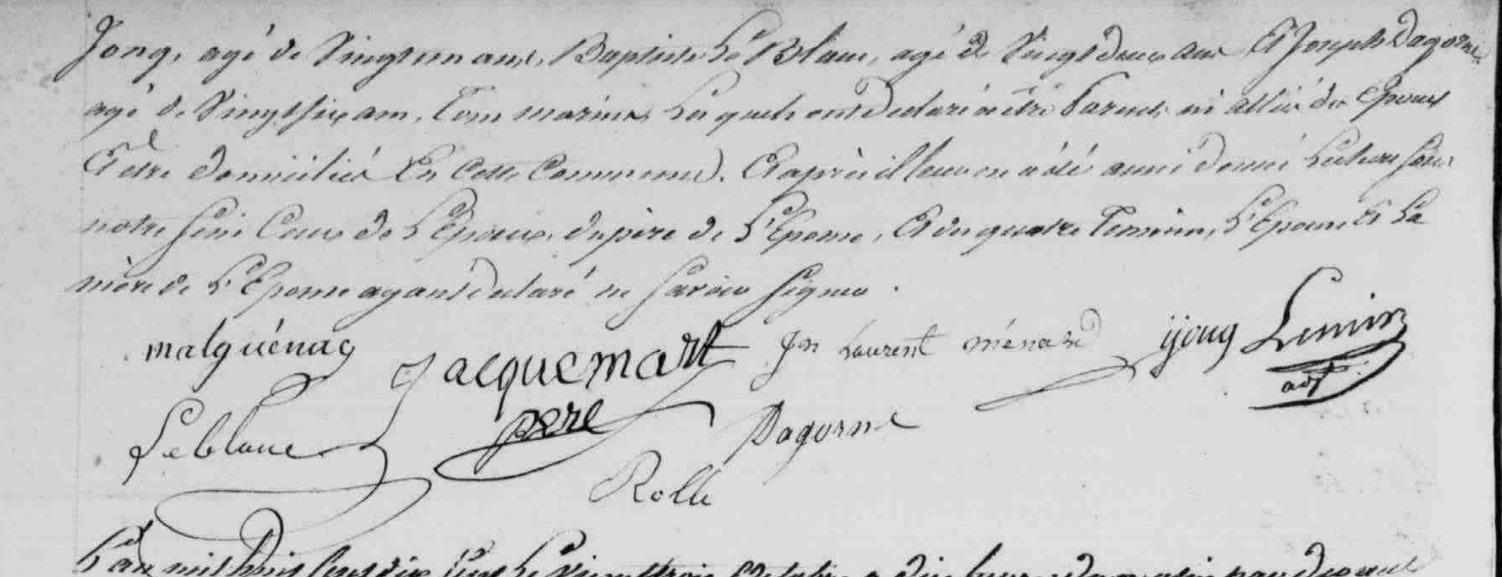 Jong, agé de Vingt un ans, Baptiste Le Blanc, agé de Vingt deux ans Et Joseph Dagorne
agé de Vingt six ans, Tous marins, Lesquels ont declaré n'être Parents ni alliés des Epoux
Et être domiciliés En cette Commune. Et après il leur en a été aussi donné Lecture sous
notre sein Ceux de L'Epoux, du père de L'Epouse, Et des quatre Temoins, L'Epouse Et La
mère de L'Epouse ayant declaré ne savoir signer.
malguénac Jacquemart Jn Laurent ménard yjong
père
Leblanc Dagorne
adjt
Rolle
L'an mil huit Cent dix Sept Le Vingt trois Octobre a dix heures du matin par devant